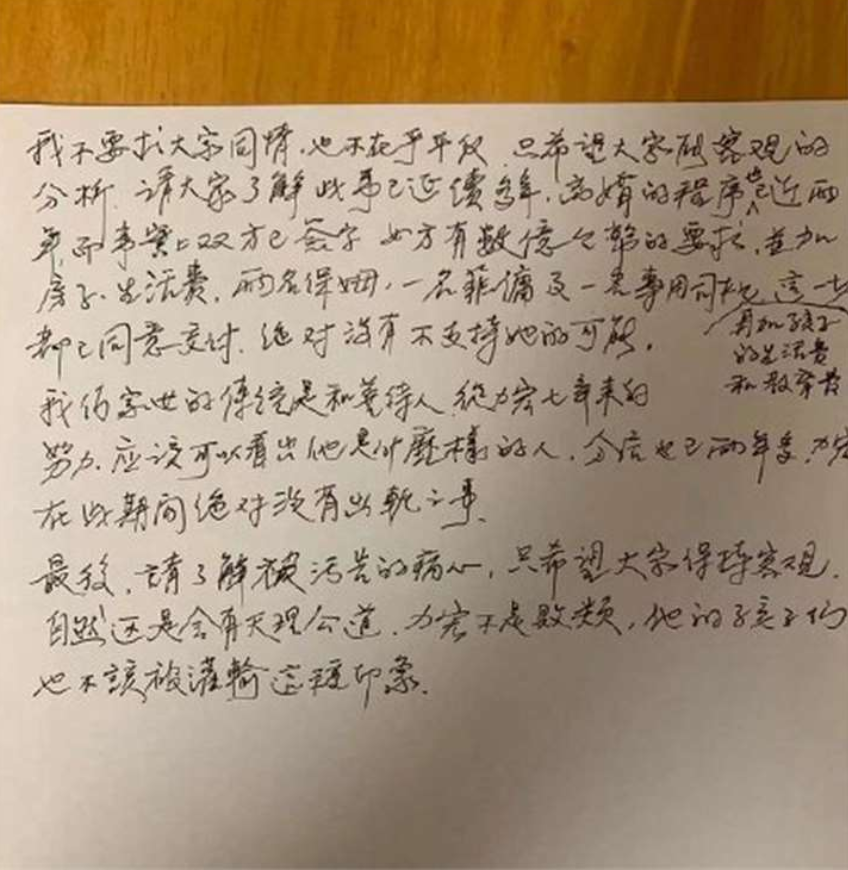 我不要求大家同情,也不在乎平反 只希望大家能客观的
分析. 請大家了解此事已延續多年,离婚的程序也已近两
年,而事實上双方已签字 女方有数億的要求,並加
房子、生活費、两名保姆,一名菲傭及一名專用司机 這一切
再加孩子
的生活費
和教育費
都已同意支付. 绝对没有不支持她的可能。
我们家世的傳统是和善待人 從力宏七年来的
努力,应该可以看出他是什麼樣的人. 分居也已两年多,力宏
在此期间绝对没有出軌之事.
最後,請了解被污告的痛心,只希望大家保持客观.
自然还是会有天理公道. 力宏不是败类,他的孩子们
也不該被灌輸這種印象.